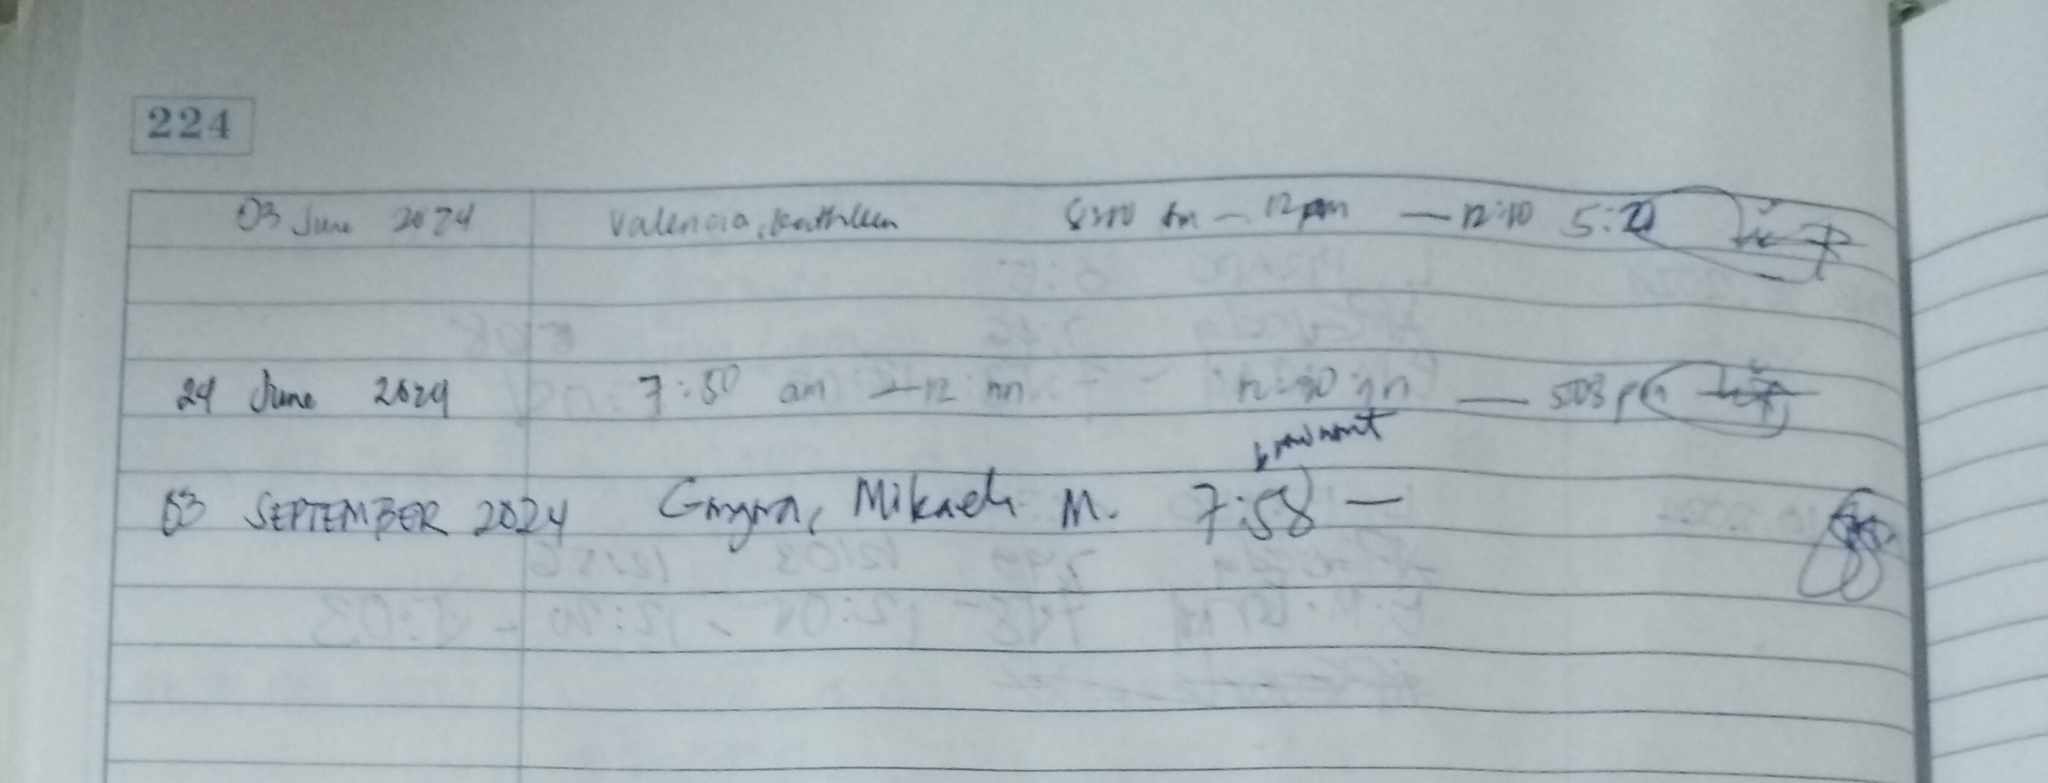 224
03 June 2024 Valencia, Kathleen 8:00 am - 12 pm — 12:10 5:21
24 June 2024 7:50 am — 12: nn 12:30 nn — 5:03 pm
brownout
03 SEPTEMBER 2024 Mikaela M. 7:58 —